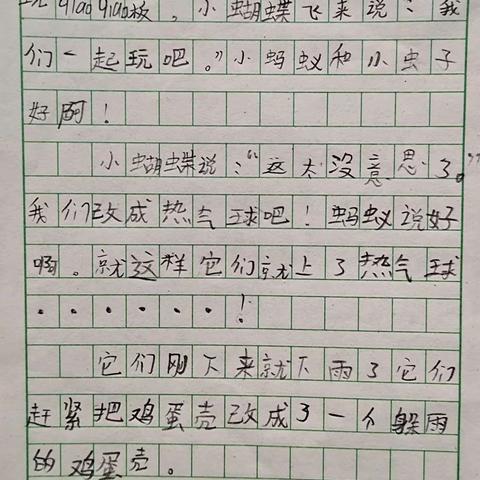 玩qiaoqiao板，小蝴蝶飞来说：我
们一起玩吧。”小蚂蚁和小虫子
好啊！
小蝴蝶说：“这太没意思了。”
我们改成热气球吧！蚂蚁说好
啊。就这样它们就上了热气球
······！
它们刚下来就下雨了它们
赶紧把鸡蛋壳改成了一个躲雨
的鸡蛋壳。